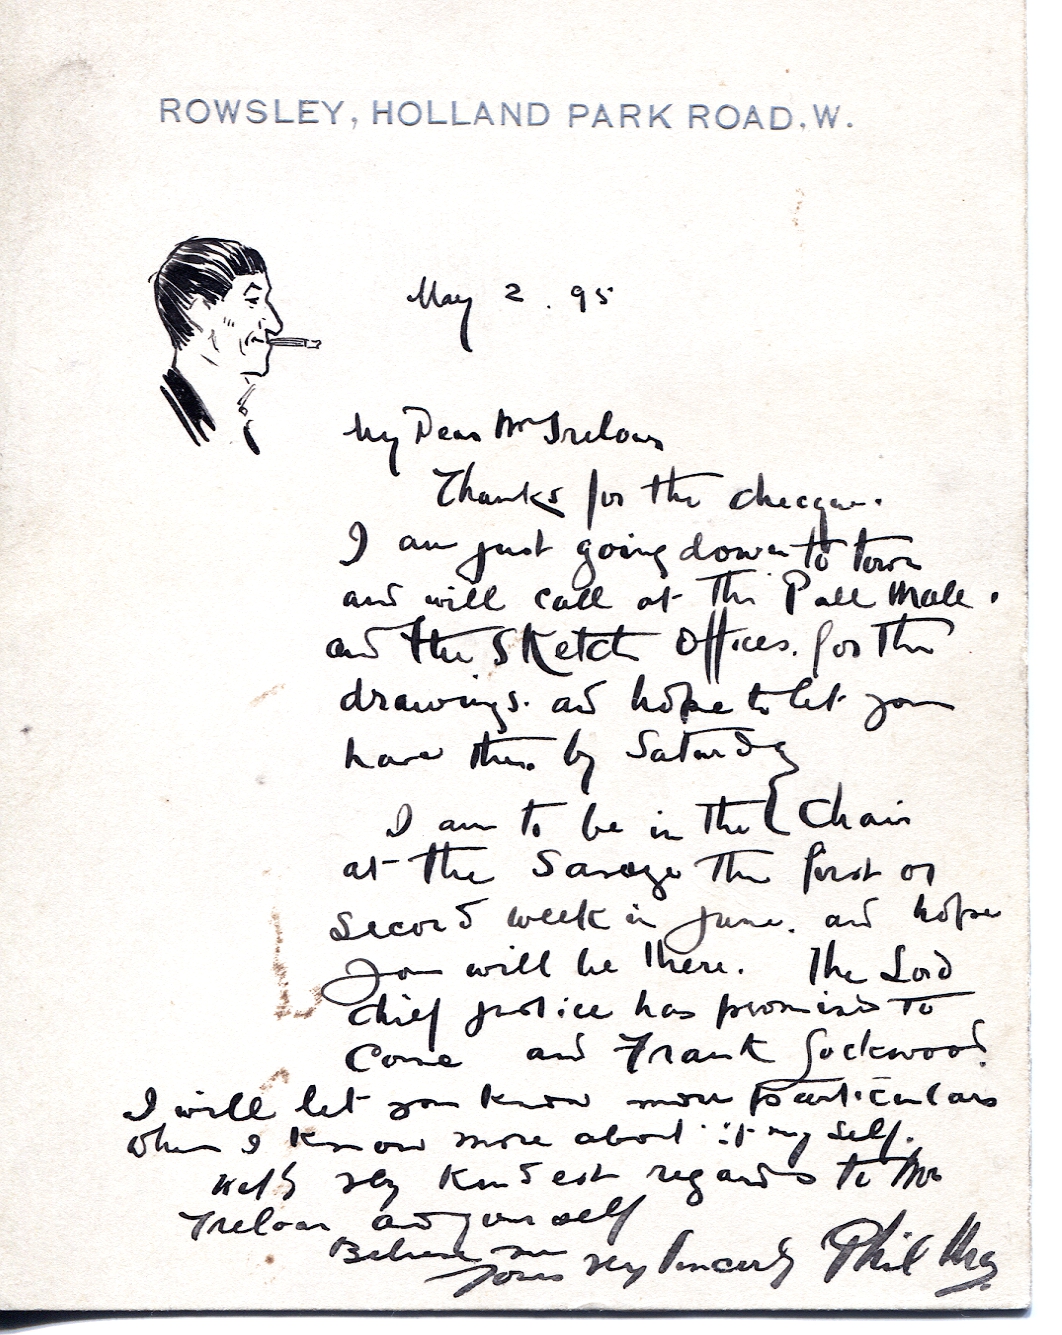 ROWSLEY, HOLLAND PARK ROAD, W.
May 2. 95
My Dear Mr Treloar
Thanks for the checque.
I am just going down to town
and will call at The Pall Mall.
and the Sketch Offices. for the
drawings. and hope to let you
have them by Saturday
I am to be in the Chair
at the Savage the first or
second week in June. and hope
you will be there. The Lord
Chief Justice has promised to
Come and Frank Lockwood.
I will let you know more particulars
when I know more about it my self.
With very Kindest regards to Mrs
Treloar and your self
Believe me
yours very Sincerely Phil May